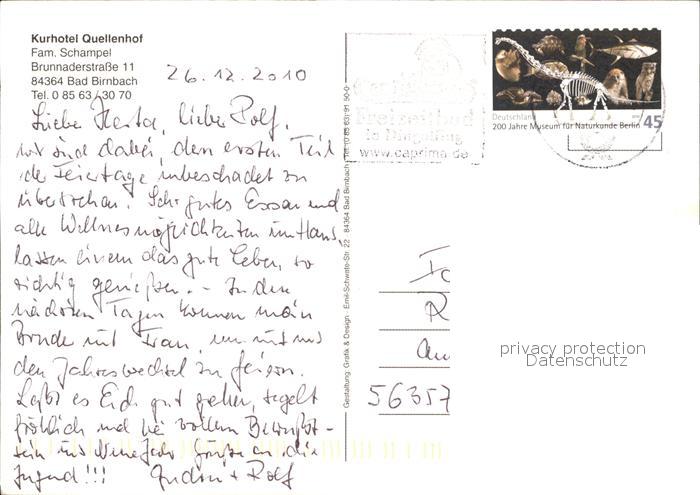 Kurhotel Quellenhof
Fam. Schampel
Brunnaderstraße 11
84364 Bad Birnbach
Tel. 0 85 63/30 70
26.12.2010
Liebe Herta, lieber Rolf,
wir sind dabei, den ersten Teil
der Feiertage unbeschadet zu
überstehen! Sehr gutes Essen und
alle Wellnessmöglichkeiten im Haus,
lassen einem das gute Leben so
richtig genießen. - In den
nächsten Tagen kommen mein
Bruder mit Frau, um mit uns
den Jahreswechsel zu feiern.
Laßt es Euch gut gehen, segelt
fröhlich und bei vollem Bewußt-
sein ins Neue Jahr. Grüße an die
Jugend!!! Gudrun + Rolf
Gestaltung: Grafik & Design - Emil-Schwate-Str. 22 · 84364 Bad Birnbach · Tel. (0 85 63) 91 50-0
Freizeitbad
in Dingolfing
www.caprima.de
Deutschland
200 Jahre Museum für Naturkunde Berlin
45
56357
privacy protection
Datenschutz